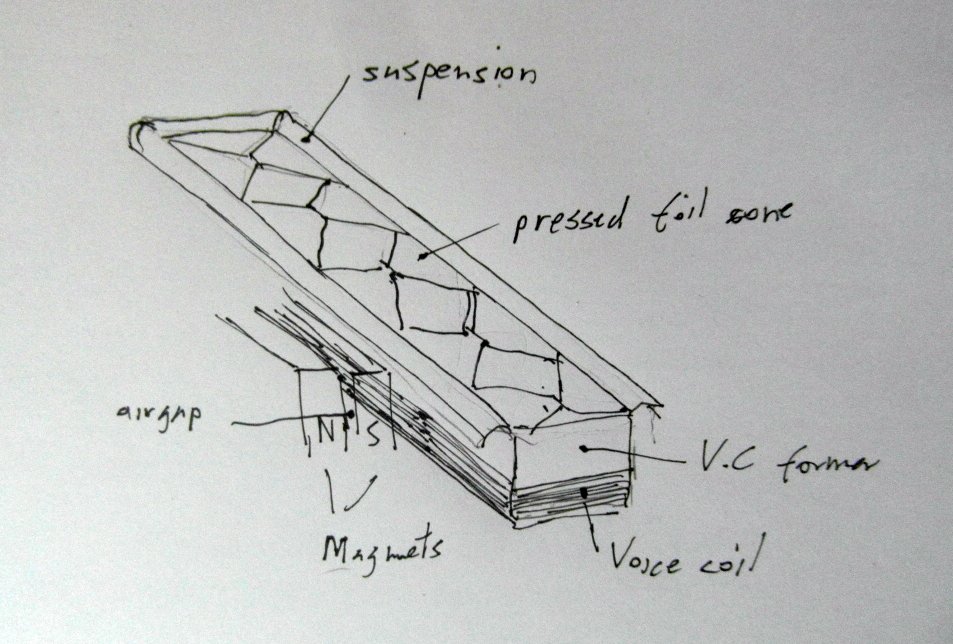 suspension
pressed foil cone
airgap
N S
V.C former
Magnets
Voice coil